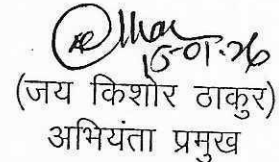 15-01-26
(जय किशोर ठाकुर)
अभियंता प्रमुख